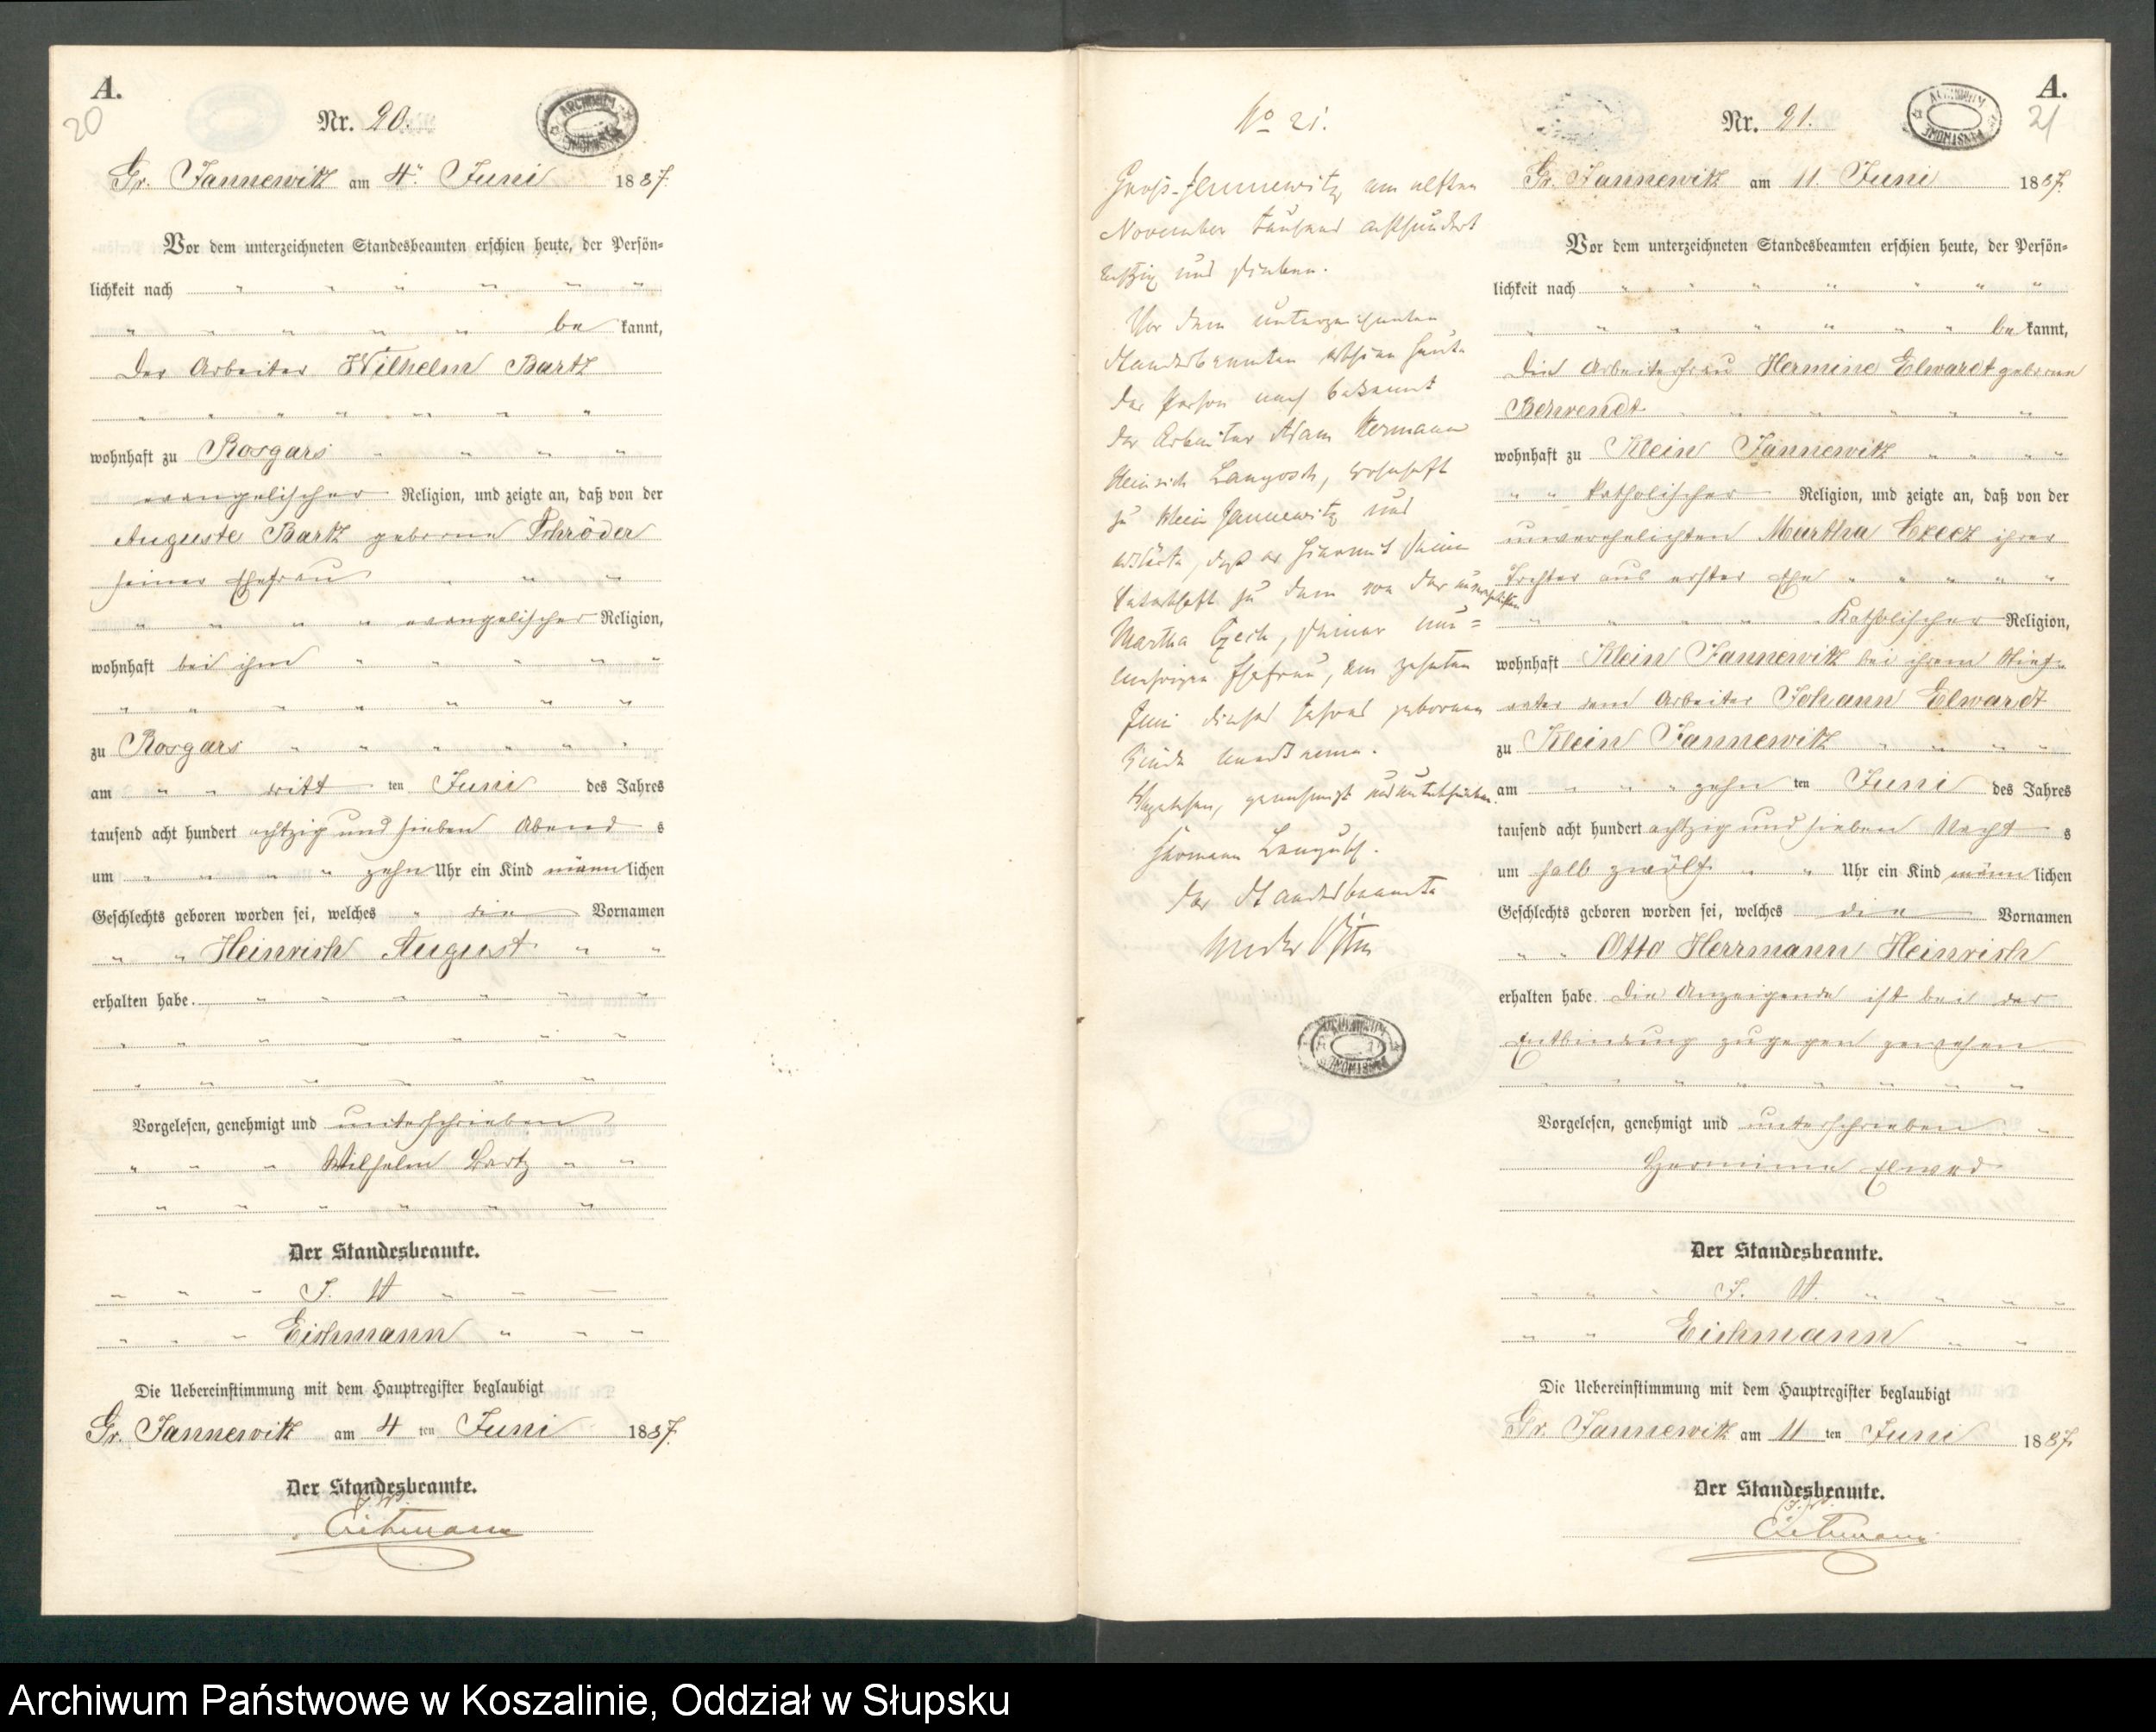 A.
20
Nr. 20.
ARCHIWUM
Gr. Jannewitz am 4. Juni 1887.
Vor dem unterzeichneten Standesbeamten erschien heute, der Persön-
lichkeit nach
be kannt,
der Arbeiter Wilhelm Bartz
wohnhaft zu Rosgars
evangelischer Religion, und zeigte an, daß von der
Auguste Bartz geborne Schröder
seiner Ehefrau
evangelischer Religion,
wohnhaft bei ihm
zu Rosgars
am ritt ten Juni des Jahres
tausend acht hundert achtzig und sieben Abend s
um zehn Uhr ein Kind männ lichen
Geschlechts geboren worden sei, welches die Vornamen
Heinrich August
erhalten habe.
Vorgelesen, genehmigt und unterschrieben
Wilhelm Bartz
Der Standesbeamte.
J. V.
Eichmann
Die Uebereinstimmung mit dem Hauptregister beglaubigt
Gr. Jannewitz am 4 ten Juni 1887.
Der Standesbeamte.
J. V.
Eichmann
No 21.
Groß-Jannewitz am elften
November tausend achthundert
achtzig und sieben.
Vor dem unterzeichneten
Standesbeamten erschien heute
der Person nach bekannt
der Arbeiter Adam Hermann
Heinrich Langosch, wohnhaft
zu Klein Jannewitz und
erklärte, daß er hiermit seine
Vaterschaft zu dem von der unverehelichten
Martha Czech, seiner nun=
mehrigen Ehefrau, am zehnten
Juni dieses Jahres geborenen
Kinde anerkenne.
Vorgelesen, genehmigt und unterschrieben.
Hermann Langosch.
Der Standesbeamte
ARCHIWUM
PAŃSTWOWE
A.
21
Nr. 21.
ARCHIWUM
PAŃSTWOWE
Gr. Jannewitz am 11. Juni 1887.
Vor dem unterzeichneten Standesbeamten erschien heute, der Persön-
lichkeit nach
be kannt,
die Arbeiterfrau Hermine Elwardt geborne
Berwendt
wohnhaft zu Klein Jannewitz
katholischer Religion, und zeigte an, daß von der
unverehelichten Martha Czecz ihrer
Tochter aus erster Ehe
Katholischer Religion,
wohnhaft Klein Jannewitz bei ihrem Stief-
vater dem Arbeiter Johann Elwardt
zu Klein Jannewitz
am zehn ten Juni des Jahres
tausend acht hundert achtzig und sieben Nacht s
um halb zwölf Uhr ein Kind männ lichen
Geschlechts geboren worden sei, welches die Vornamen
Otto Herrmann Heinrich
erhalten habe. Die Anzeigende ist bei der
Entbindung zugegen gewesen
Vorgelesen, genehmigt und unterschrieben.
Hermine Elward
Der Standesbeamte.
J. V.
Eichmann
Die Uebereinstimmung mit dem Hauptregister beglaubigt
Gr. Jannewitz am 11 ten Juni 1887.
Der Standesbeamte.
J. V.
Eichmann
Archiwum Państwowe w Koszalinie, Oddział w Słupsku